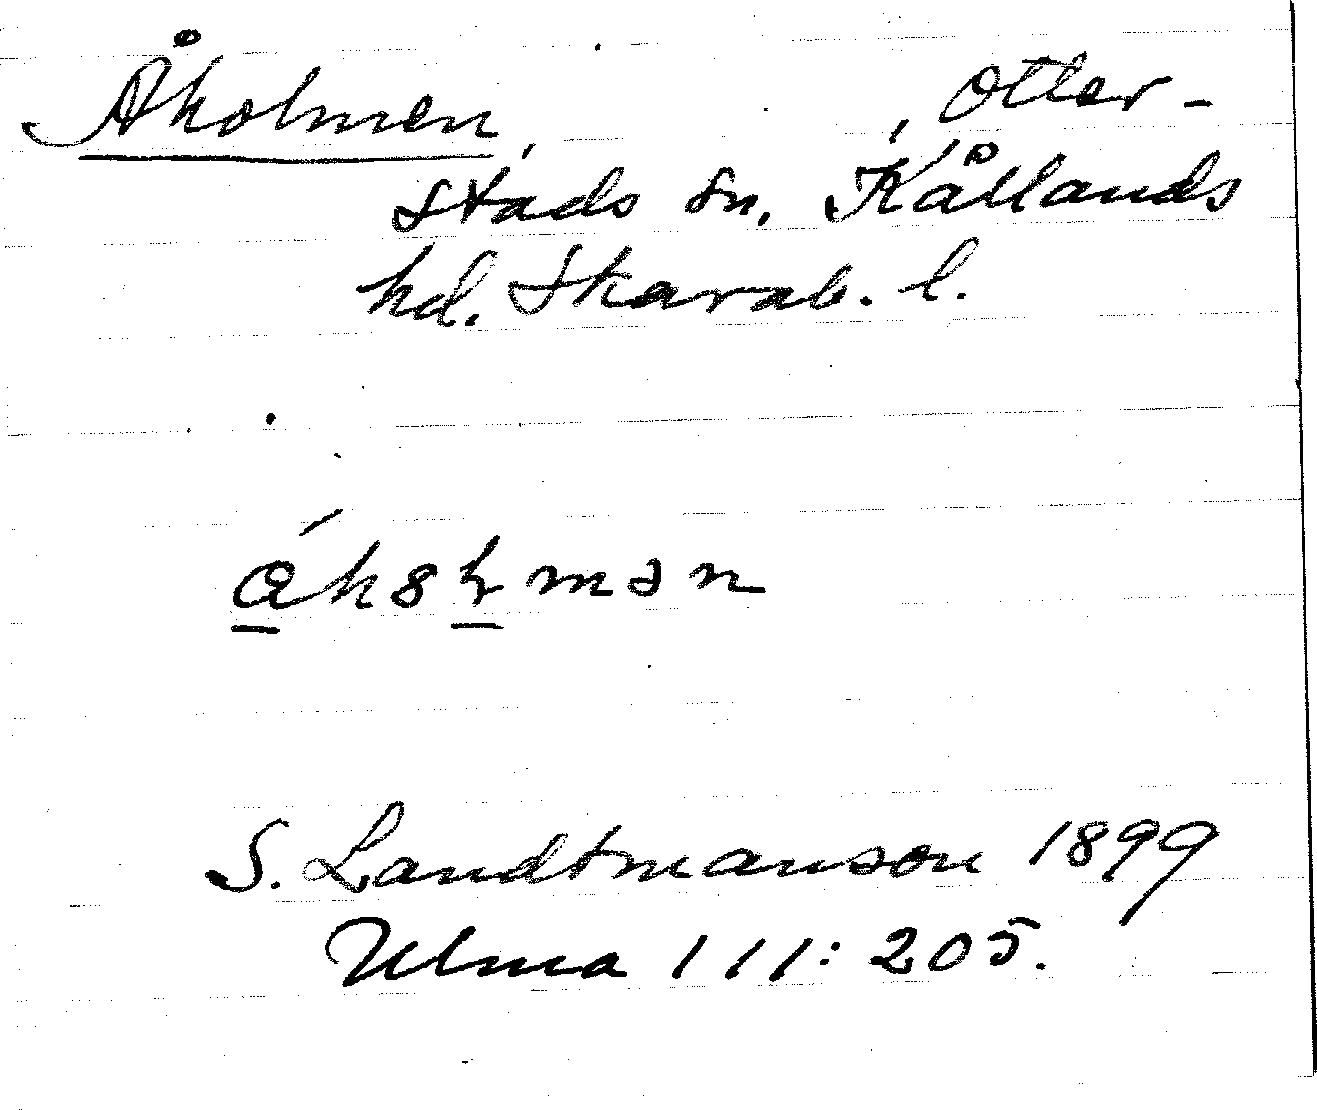 Åkolmen, Otter-
stads sn, Kållands
hd. Skarab. l.
S. Landtmanson 1899
Ulma 111:205.